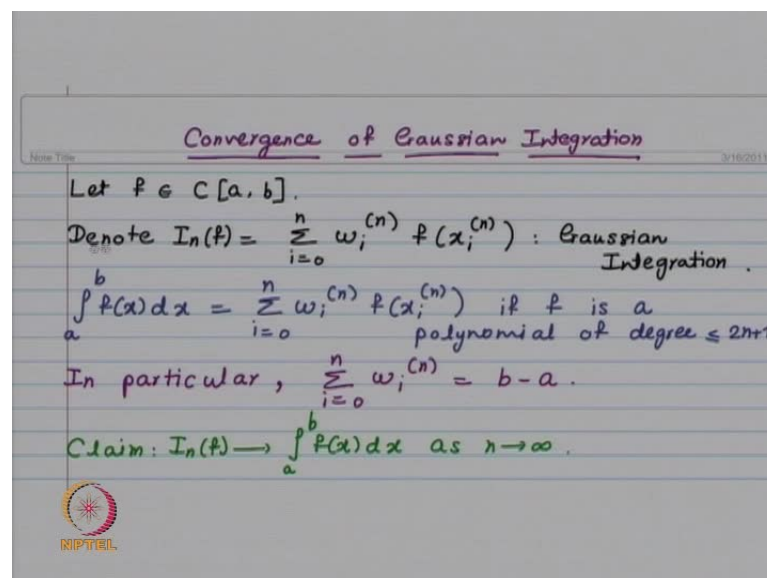 Convergence of Gaussian Integration
Note Title
3/16/2011
Let f ∈ C[a, b].
Denote I_n(f) = ∑_{i=0}^{n} w_i^{(n)} f(x_i^{(n)}) : Gaussian
Integration.
∫_a^b f(x) dx = ∑_{i=0}^{n} w_i^{(n)} f(x_i^{(n)}) if f is a
polynomial of degree ≤ 2n+1
In particular, ∑_{i=0}^{n} w_i^{(n)} = b-a.
Claim: I_n(f) → ∫_a^b f(x) dx as n → ∞.
NPTEL